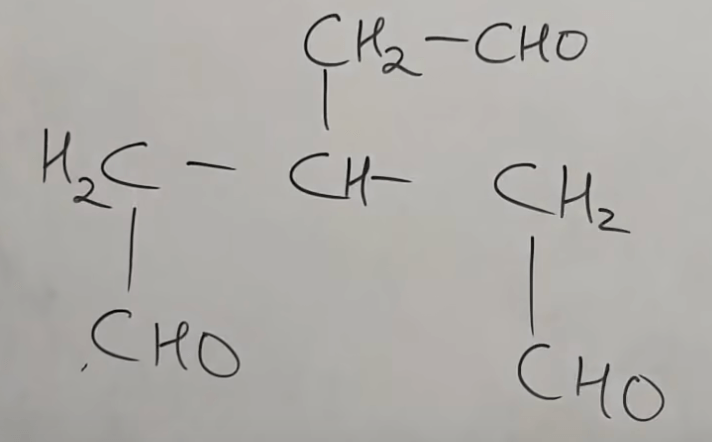 CH₂-CHO
H₂C - CH- CH₂
CHO CHO